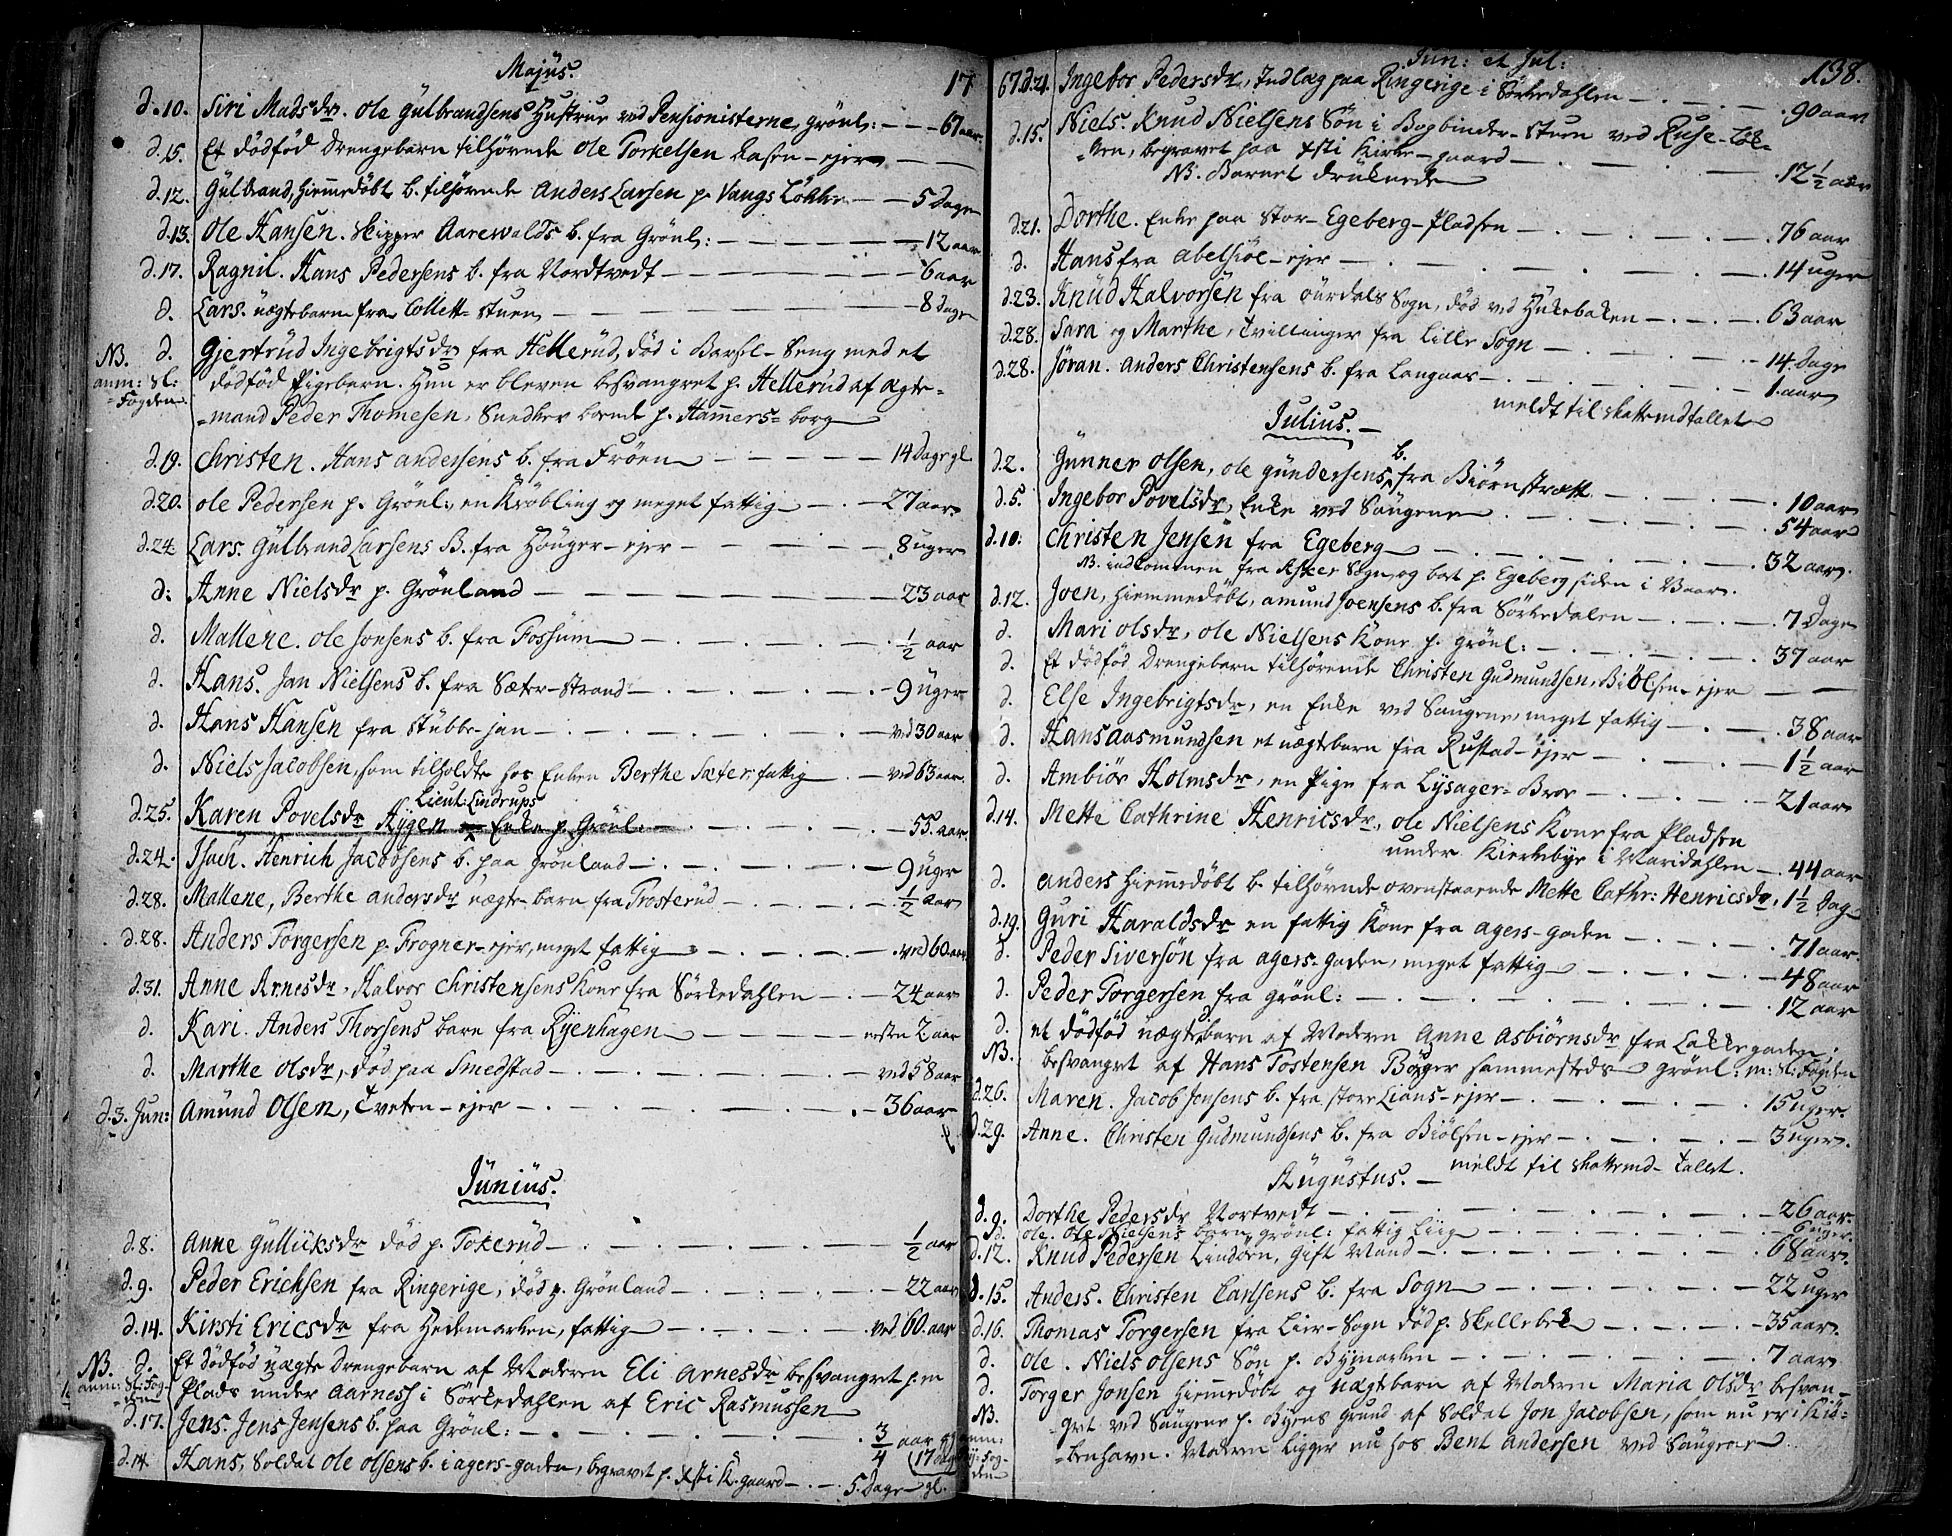 Majus.
17
d.10. Siri Madsdr. Ole Gulbrandsens Hustrue ved Pensionisterne, Grönl: - - - 67 aar
d.15. Et dödföd Drengebarn tilhörende Ole Torkelsen Aasen-ejer - - -
d.12. Gulbrand, hiemmedöbt b. tilhörende Anders Larsen p. Vangs Lökke - - 5 Dage
d.13. Ole Hansen. Skipper Aarewalds b. fra Grönl: - - - 12 aar
d.17. Ragnil. Hans Pedersens b. fra Nordtvedt - - - 6 aar
d. Lars. uægtebarn fra Collett-stuen - - - 8 dage
NB. d. Gjertrud Ingebrigtsdr fra Hellerud, död i Barsel-Seng med et
anm: Sl: dödföd Pigebarn. Hun er bleven besvangret p. Hellerud af ægte-
Fogden. -mand Peder Thomesen, Snedker boende p. Hammers-borg
d.19. Christen. Hans Andersens b. fra Fröen - - - 14 Dage gl
d.20. Ole Pedersen p. Grönl:, en Kröbling og meget fattig - - 27 aar
d.24 Lars. Gulbrand Larsens B. fra Houger-ejer - - - 8 uger
d: Anne Nielsdr p. Grönland - - - 23 aar
d. Mallene. Ole Jonsens b. fra Fossum - - - 1/2 aar
d. Hans. Jan Nielsens b. fra Sæter-strand - - - 9 uger
d. Hans Hansen fra Stubbe-jan - - - ved 30 aar
d. Niels Jacobsen, som tilholdte hos Enken Berthe Sæter, fattig - - ved 63 aar.
Lieut: Lindrups
d.25. Karen Povelsdr Hygen Enke p. Grönl: - - - 55. aar
d.24. Isach. Henrich Jacobsens b. paa Grönland - - - 9 uger
d.28. Mallene, Berthe Andersdr uægte-barn fra Trosterud - - - 1/2 aar
d.28. Anders Torgersen p. Frogner-ejer, meget fattig - - - ved 60 aar
d.31. Anne Arnesdr, Halvor Christensens Kone fra Sörkedahlen - - 24 aar
d. Kari. Anders Thorsens barn fra Ryenhagen - - - næsten 2 aar
d. Marthe Olsdr, död paa Smedstad - - - ved 58 aar
d.3. Jun: Amund Olsen, Tveten-ejer - - - 36 aar
Junius.
d.8. Anne Gullicksdr död p. Tokerud - - - 1/2 aar
d.9. Peder Erichsen fra Ringerige, död p. Grönland - - - 22 aar
d.14. Kirsti Ericsdr fra Hedemarken, fattig - - - ved 60. aar
NB. d. Et dödföd uægte Drengebarn af Moderen Eli Arnesdr besvangret p. en
anm: Sl: Fog-den Plads under Aarness i Sörkedahlen af Eric Rasmussen
d.17. Jens. Jens Jensens b. paa Grönl: - - - 3/4 aar
d.14 Hans, Soldat Ole Olsens b. i agers-gaden, begravet p. Xsti K. gaard - - 5. Dage gl.
Jun: et Jul:
138.
67. d.21. Ingebor Pedersdr, Indlæg paa Ringerige i Sörkedahlen - - - 90 aar
d.15. Niels. Knud Nielsens Sön i Bogbinder-stuen ved Ruse-lök-
-ken, begravet paa Xsti Kirke-gaard - - - 12 1/2 aar
NB. Barnet druknede
d.21. Dorthe. Enke paa Stor-Egeberg-Pladsen - - - 76 aar
d. Hans fra Abelsiöe-ejer - - - 14 uger
d.23. Knud Halvorsen fra Ourdals Sogn, död ved Hukebaken - - - 63 aar
d.28. Sara og Marthe, Tvillinger fra Lille Sogn - - - 14 Dage
d.28. Jöran. Anders Christensens b. fra Langaas - - - 1. aar
meldt til skattemdtallet
Julius.
d.2. Gunner Olsen, Ole Gundersens b. fra Biörnstræt - - - 10 aar
d.5. Ingebor Povelsdr, Enke ved Saugene - - - 54 aar
d.10. Christen Jensen fra Egeberg - - - 32 aar.
NB. indkommen fra Asker Sogn, og boet p. Egeberg siden i Vaar.
d.12. Joen, hiemmedöbt, Amund Joensens b. fra Sörkedalen - - - 7 Dage
d. Mari Olsdr, Ole Nielsens Kone p. Grönl: - - - 37 aar
d. Et dödföd Drengebarn tilhörende Christen Gudmundsen, Biölsen-ejer - -
d. Else Ingebrigtsdr, en Enke ved Saugene, meget fattig - - - 38 aar
d. Hans Aasmundsen et uægtebarn fra Rustad-ejer - - - 1 1/2 aar
d. Ambiör Holmsdr, en Pige fra Lysager-Broe - - - 21 aar
d.14. Mette Cathrine Henricsdr, Ole Nielsens Kone fra Pladsen
under Kierkebye i Maridahlen - 44 aar
d. Anders hiemmedöbt b. tilhörende ovenstaaende Mette Cathr: Henricsdr. 1 1/2 Dag
d.19. Guri Haraldsdr en fattig Kone fra agers-gaden - - - 71 aar.
d. Peder Siversön fra agers-gaden, meget fattig - - - 48 aar
d. Peder Torgersen fra Grönl: - - - 12 aar
d. et dödföd uægtebarn af Moderen Anne Asbiörnsdr fra Lakkegaden,
NB. besvangret af Hans Tostensen Börger sammesteds Grönl: m: Sl: Fogden
d.26. Maren. Jacob Jensens b. fra store Lians-ejer - - - 15 uger.
d.29. Anne. Christen Gudmundsens b. fra Biölsen-ejer - - - 3 uger.
meldt til skattemd-tallet.
Augustus.
d.9. Dorthe Pedersdr Nortvedt - - - 26 aar.
d. Ole. Ole Nielsens barn, Grönl: fattig Liig - - - 6 uger.
d.12. Knud Pedersen Lindöen, gift Mand - - - 68 aar.
d.15. Anders. Christen Carlsens b. fra Sogn - - - 22 uger
d.16. Thomas Torgersen fra Lier-Sogn död p. Skellebek - - - 35 aar.
d. Ole. Niels Olsens Sön p. Bymarken - - - 7 aar
d. Torger Jonsen hiemmedöbt og uægtebarn af Moderen Maria Olsdr besvan-
NB. -gret ved Saugene p. Byens Grund af Soldat Jon Jacobsen, som nu er i Kiö-
-benhavn. Moderen ligger nu hos Bent Andersen ved Saugene